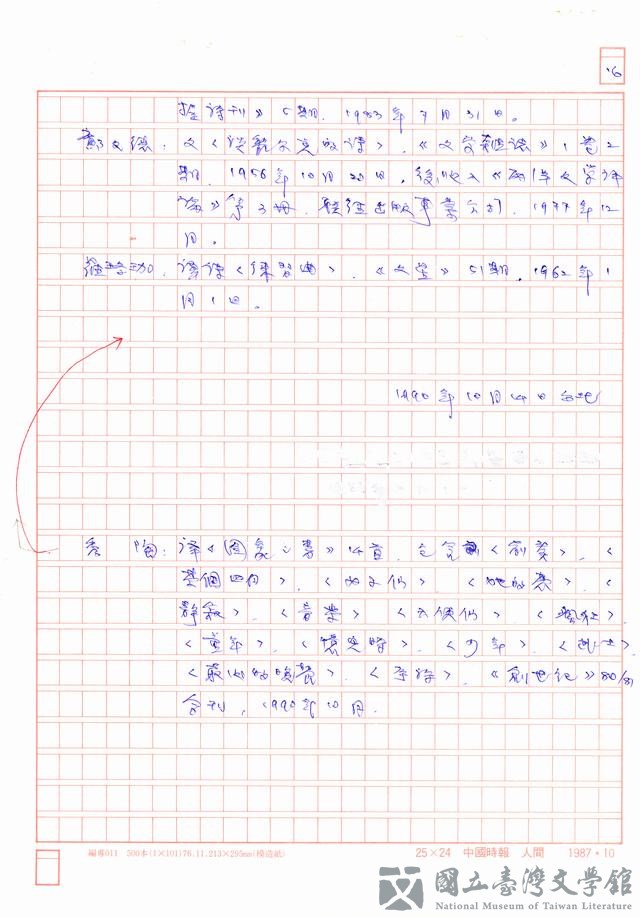 16
握詩刊》5期.1983年7月31日。
文德.文《談里尔克的詩》.《文學雜誌》1卷2
期.1956年10月20日.後收入《西洋文學評
論》第3冊.聯經出版事業公司.1977年12
月。
譯詩《練習曲》.《文星》51期.1962年1
月1日。
1990年10月14日台北
秀 陶:譯《图象之書》14首.包含《前奏》.《
某個四月》.《少女们》.《
静寂》.《音樂》《天使们》.《
《童年》.《憶兒時》.《少年》.
《最後的晚餐》.《序詩》.《創世纪》80/81
合刊,1990年10月.
編專011 500本(1×101)76.11.213×295mm(模造紙)
25×24 中國時報 人間 1987·10
國立臺灣文學館
National Museum of Taiwan Literature